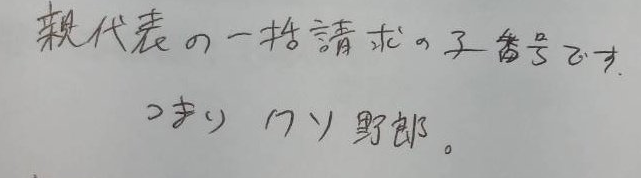 親代表の一括請求の子番号です.
つまりクソ野郎。